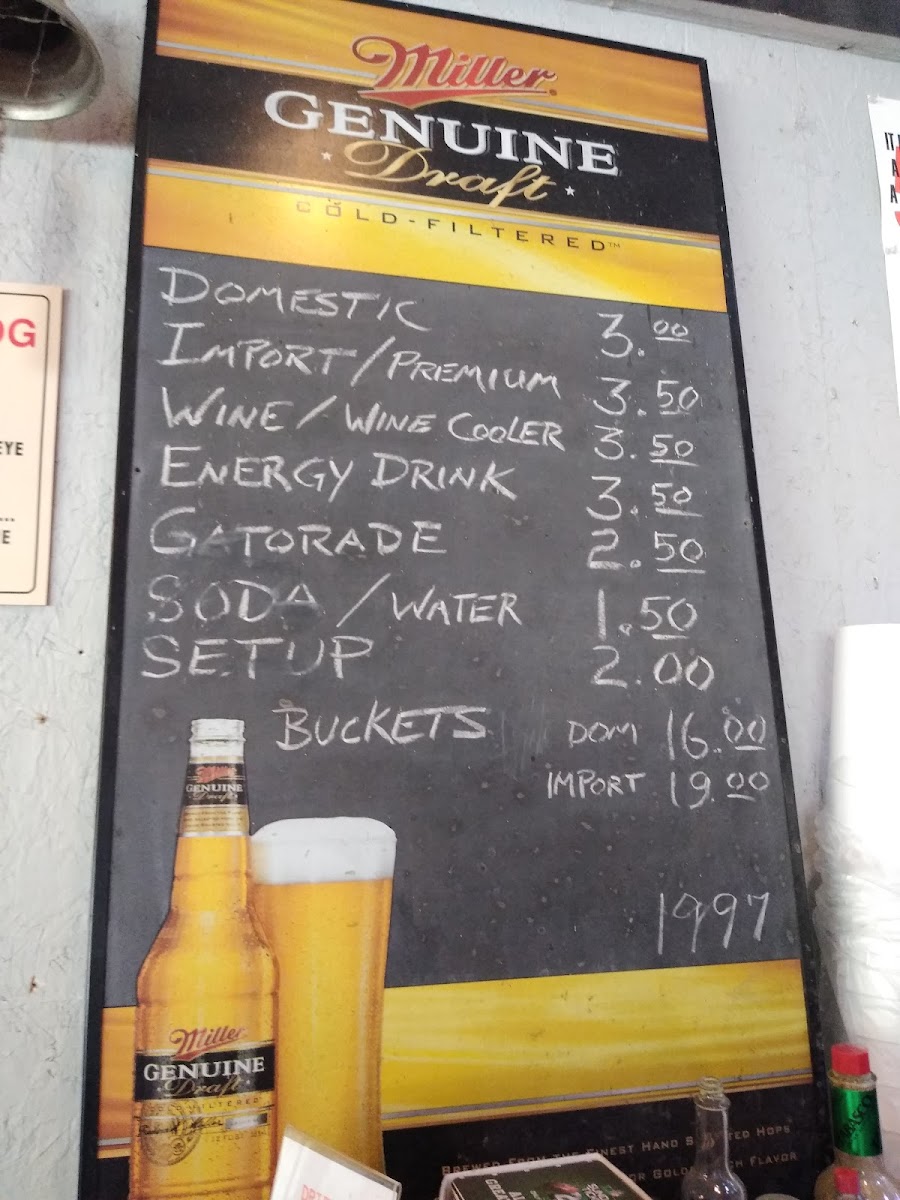 Miller
GENUINE
Draft
COLD-FILTERED™
DOMESTIC 3.00
IMPORT/PREMIUM 3.50
WINE/WINE COOLER 3.50
ENERGY DRINK 3.50
GATORADE 2.50
SODA/WATER 1.50
SETUP 2.00
BUCKETS DOM 16.00
IMPORT 19.00
1997
Miller
GENUINE
Draft
Miller
GENUINE
Draft
BREWED FROM THE FINEST HAND HOPS
GOLD FLAVOR
OG
EYE
...
E
IT
A
A